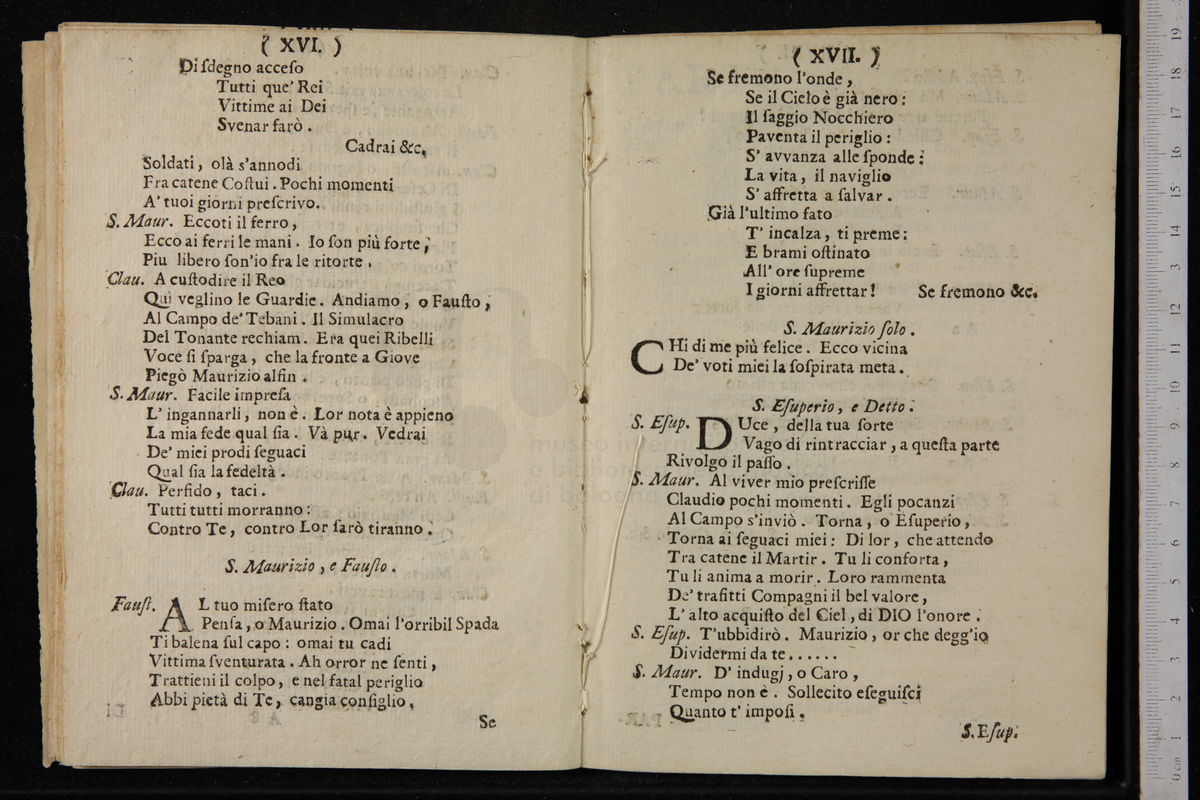 ( XVI. )
Di ſdegno acceſo
Tutti que' Rei
Vittime ai Dei
Svenar farò .
Cadrai &c.
Soldati, olà s'annodi
Fra catene Coſtui. Pochi momenti
A' tuoi giorni preſcrivo.
S. Maur. Eccoti il ferro,
Ecco ai ferri le mani. Io ſon più forte;
Piu libero ſon'io fra le ritorte.
Clau. A cuſtodire il Reo
Quì veglino le Guardie. Andiamo, o Fauſto,
Al Campo de' Tebani. Il Simulacro
Del Tonante rechiam. Fra quei Ribelli
Voce ſi ſparga, che la fronte a Giove
Piegò Maurizio alfin.
S. Maur. Facile impreſa
L' ingannarli, non è. Lor nota è appieno
La mia fede qual ſia. Và pur. Vedrai
De' miei prodi ſeguaci
Qual ſia la fedeltà.
Clau. Perfido, taci.
Tutti tutti morranno:
Contro Te, contro Lor ſarò tiranno.
S. Maurizio, e Fauſto.
Fauſt. AL tuo miſero ſtato
Penſa, o Maurizio. Omai l'orribil Spada
Ti balena ſul capo: omai tu cadi
Vittima ſventurata. Ah orror ne ſenti,
Trattieni il colpo, e nel fatal periglio
Abbi pietà di Te, cangia conſiglio.
Se
( XVII. )
Se fremono l'onde,
Se il Cielo è già nero:
Il ſaggio Nocchiero
Paventa il periglio:
S' avvanza alle ſponde:
La vita, il naviglio
S' affretta a ſalvar.
Già l'ultimo fato
T' incalza, ti preme:
E brami oſtinato
All' ore ſupreme
I giorni affrettar! Se fremono &c.
S. Maurizio ſolo.
CHi di me più felice. Ecco vicina
De' voti miei la ſoſpirata meta.
S. Eſuperio, e Detto.
S. Eſup. DUce, della tua ſorte
Vago di rintracciar, a queſta parte
Rivolgo il paſſo.
S. Maur. Al viver mio preſcriſſe
Claudio pochi momenti. Egli pocanzi
Al Campo s'inviò. Torna, o Eſuperio,
Torna ai ſeguaci miei: Di lor, che attendo
Tra catene il Martir. Tu li conforta,
Tu li anima a morir. Loro rammenta
De' trafitti Compagni il bel valore,
L' alto acquiſto del Ciel, di DIO l'onore.
S. Eſup. T'ubbidirò. Maurizio, or che degg'io
Dividermi da te......
S. Maur. D' indugj, o Caro,
Tempo non è. Sollecito eſeguiſci
Quanto t' impoſi.
S. Eſup.